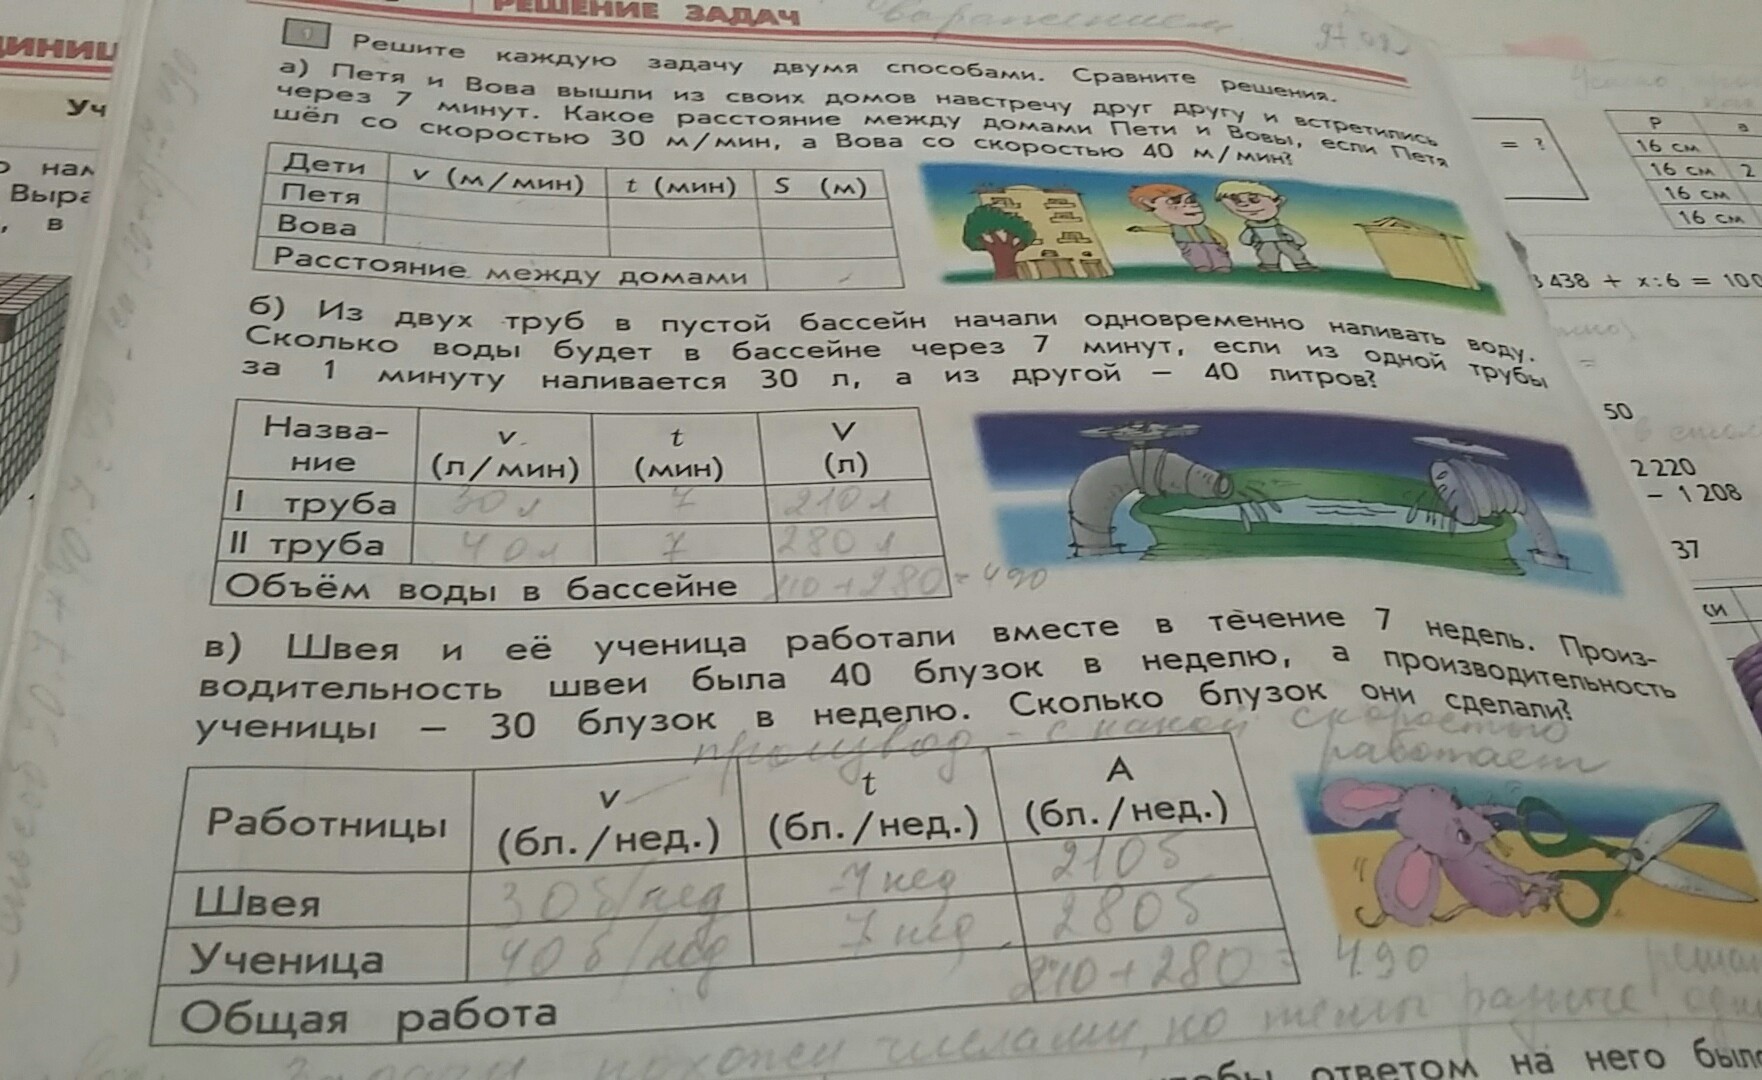 РЕШЕНИЕ ЗАДАЧ
1 Решите каждую задачу двумя способами. Сравните решения.
а) Петя и Вова вышли из своих домов навстречу друг другу и встретились
через 7 минут. Какое расстояние между домами Пети и Вовы, если Петя
шёл со скоростью 30 м/мин, а Вова со скоростью 40 м/мин?
Дети v (м/мин) t (мин) S (м)
Петя
Вова
Расстояние между домами
б) Из двух труб в пустой бассейн начали одновременно наливать воду.
Сколько воды будет в бассейне через 7 минут, если из одной трубы
за 1 минуту наливается 30 л, а из другой – 40 литров?
Назва- v t V
ние (л/мин) (мин) (л)
I труба 30 л 7 210 л
II труба 40 л 7 280 л
Объём воды в бассейне 210 + 280 = 490
в) Швея и её ученица работали вместе в течение 7 недель. Произ-
водительность швеи была 40 блузок в неделю, а производительность
ученицы – 30 блузок в неделю. Сколько блузок они сделали?
производ - с какой скоростью
работает
v t A
Работницы (бл./нед.) (бл./нед.) (бл./нед.)
Швея 30 б/нед 7 нед 210 б
Ученица 40 б/нед 7 нед 280 б
Общая работа 210 + 280 = 490
Задачи похожи числами, но темы разные
ответом на него было
Уч
Выра
, в
= ?
P a
16 см
16 см 2
16 см
16 см
438 + x:6 = 100
50
2 220
– 1 208
37